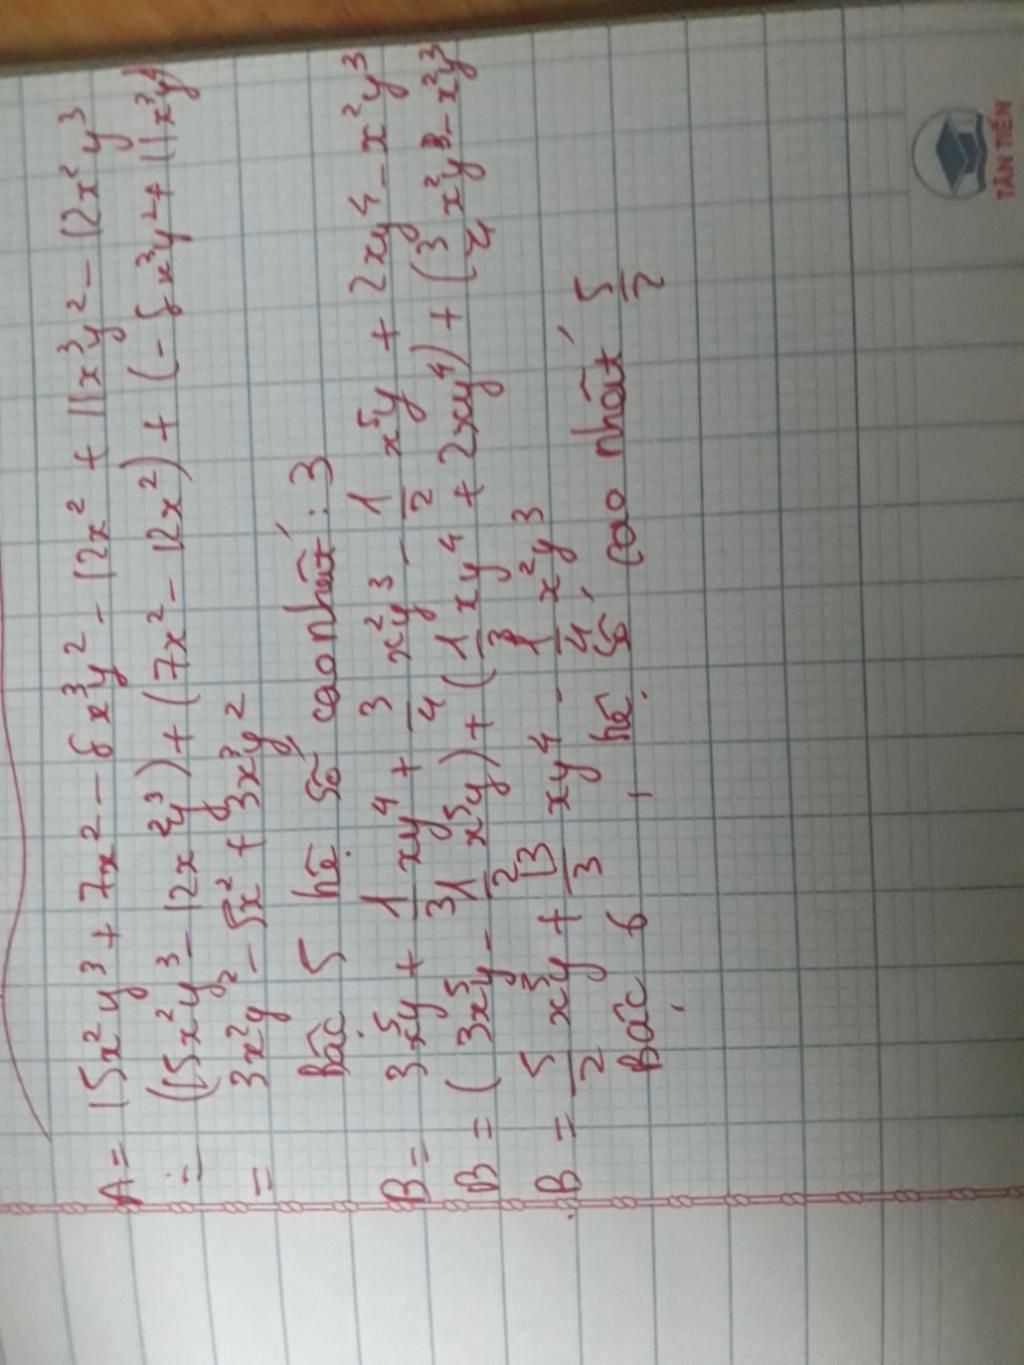 A = 15x²y³ + 7x² - 8x³y² - 12x² + 11x³y² - 12x²y³
= (15x²y³ - 12x²y³) + (7x² - 12x²) + (-8x³y² + 11x³y²)
= 3x²y³ - 5x² + 3x³y²
Bậc 5 hệ số cao nhất: 3
B = 3x⁵y + 1/3 xy⁴ + 3/4 x²y³ - 1/2 x⁵y + 2xy⁴ - x²y³
B = (3x⁵y - 1/2 x⁵y) + (1/3 xy⁴ + 2xy⁴) + (3/4 x²y³ - x²y³
B = 5/2 x⁵y + 13/3 xy⁴ - 1/4 x²y³
Bậc 6, hệ số cao nhất 5/2
TÂN TIẾN